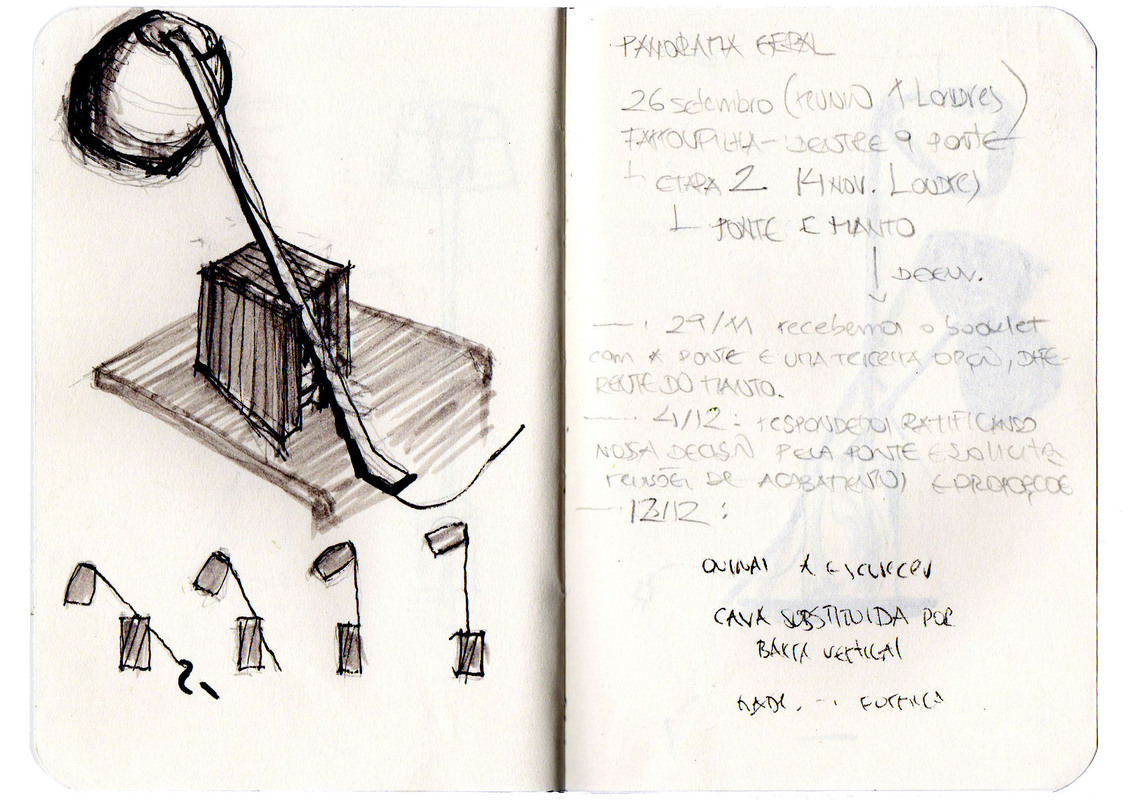 PANORAMA GERAL
26 setembro (REUNIÃO Londres)
FARROUPILHA - DENTRE 9 PONTE
ETAPA 2 14 NOV. LONDRES
PONTE E MANTO
DESENV.
29/11 recebemos o booklet
com A PONTE E UMA TERCEIRA OPÇÃO, DIFE-
RENTE DO MANTO.
4/12: RESPONDEMOS RATIFICANDO
NOSSA DECISÃO PELA PONTE E SOLICITA
REVISÕES DE ACABAMENTOS E PROPORÇÕES
12/12:
A ESCURECER
CAVA SUBSTITUIDA POR
BARRA VERTICAL